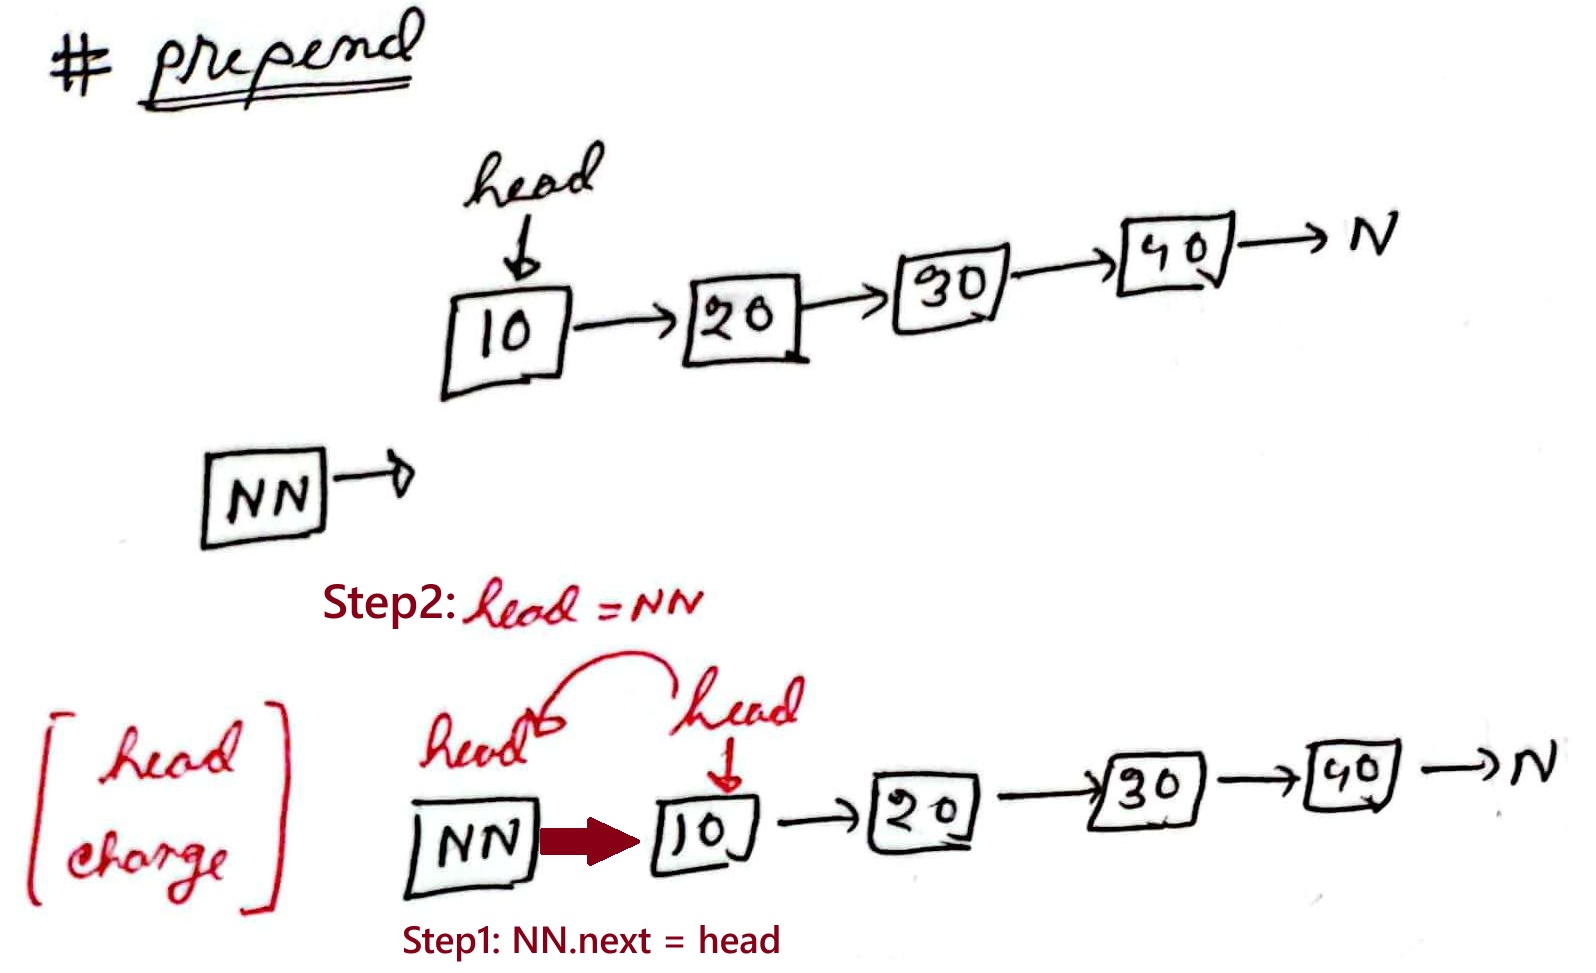 # prepend
head
10 → 20 → 30 → 40 → N
NN →
Step2: head = NN
head head
[head change]
NN → 10 → 20 → 30 → 40 → N
Step1: NN.next = head